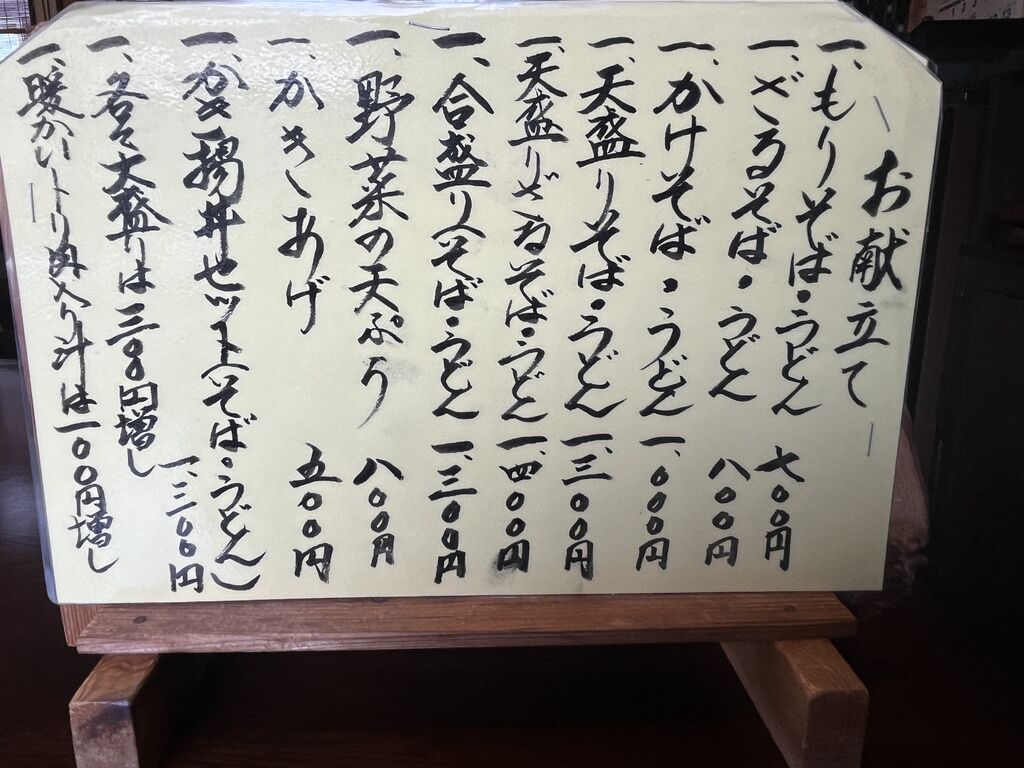 お献立て
一、もりそば・うどん 七〇〇円
一、ざるそば・うどん 八〇〇円
一、かけそば・うどん 一、〇〇〇円
一、天盛りそば・うどん 一、三〇〇円
一、天盛りざるそば・うどん 一、四〇〇円
一、合盛り(そば・うどん 一、三〇〇円
一、野菜の天ぷら 八〇〇円
一、かきあげ 五〇〇円
一、かき揚丼セット(そば・うどん) 一、三〇〇円
一、各々大盛りは三〇〇円増し
一、暖かいトリ肉入り汁は一〇〇円増し